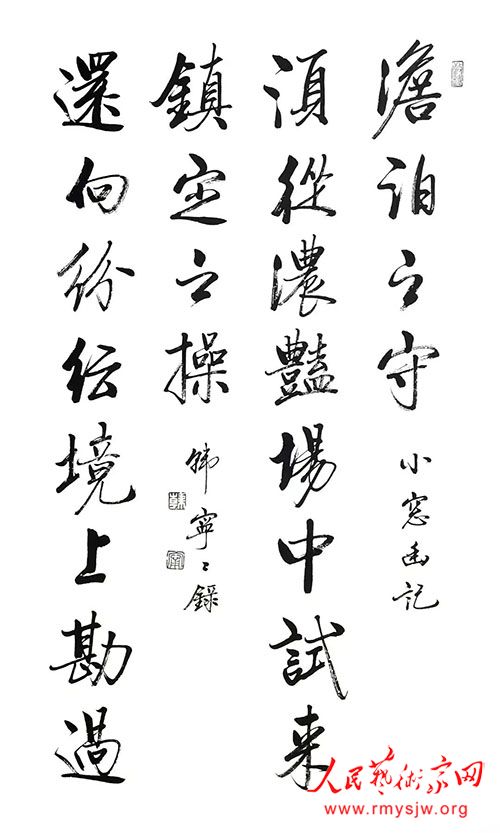 澹泊之守
小窓幽記
湏從濃豔場中試来
鎮定之操
韩寧〻錄
還向紛紜境上勘過
人民藝術家网
www.rmysjw.org